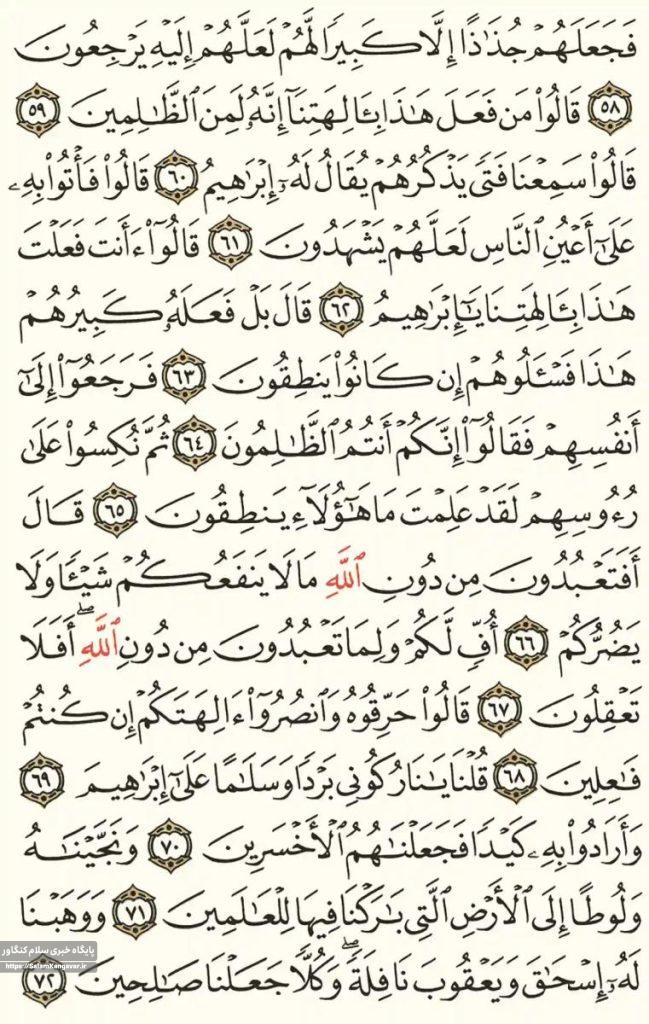 فَجَعَلَهُمْ جُذَٰذًا إِلَّا كَبِيرًا لَّهُمْ لَعَلَّهُمْ إِلَيْهِ يَرْجِعُونَ
﴿٥٨﴾ قَالُوا۟ مَن فَعَلَ هَٰذَا بِـَٔالِهَتِنَآ إِنَّهُۥ لَمِنَ ٱلظَّٰلِمِينَ ﴿٥٩﴾
قَالُوا۟ سَمِعْنَا فَتًى يَذْكُرُهُمْ يُقَالُ لَهُۥٓ إِبْرَٰهِيمُ ﴿٦٠﴾ قَالُوا۟ فَأْتُوا۟ بِهِۦ
عَلَىٰٓ أَعْيُنِ ٱلنَّاسِ لَعَلَّهُمْ يَشْهَدُونَ ﴿٦١﴾ قَالُوٓا۟ ءَأَنتَ فَعَلْتَ
هَٰذَا بِـَٔالِهَتِنَا يَٰٓإِبْرَٰهِيمُ ﴿٦٢﴾ قَالَ بَلْ فَعَلَهُۥ كَبِيرُهُمْ
هَٰذَا فَسْـَٔلُوهُمْ إِن كَانُوا۟ يَنطِقُونَ ﴿٦٣﴾ فَرَجَعُوٓا۟ إِلَىٰٓ
أَنفُسِهِمْ فَقَالُوٓا۟ إِنَّكُمْ أَنتُمُ ٱلظَّٰلِمُونَ ﴿٦٤﴾ ثُمَّ نُكِسُوا۟ عَلَىٰ
رُءُوسِهِمْ لَقَدْ عَلِمْتَ مَا هَٰٓؤُلَآءِ يَنطِقُونَ ﴿٦٥﴾ قَالَ
أَفَتَعْبُدُونَ مِن دُونِ ٱللَّهِ مَا لَا يَنفَعُكُمْ شَيْـًٔا وَلَا
يَضُرُّكُمْ ﴿٦٦﴾ أُفٍّ لَّكُمْ وَلِمَا تَعْبُدُونَ مِن دُونِ ٱللَّهِ ۖ أَفَلَا
تَعْقِلُونَ ﴿٦٧﴾ قَالُوا۟ حَرِّقُوهُ وَٱنصُرُوٓا۟ ءَالِهَتَكُمْ إِن كُنتُمْ
فَٰعِلِينَ ﴿٦٨﴾ قُلْنَا يَٰنَارُ كُونِى بَرْدًا وَسَلَٰمًا عَلَىٰٓ إِبْرَٰهِيمَ ﴿٦٩﴾
وَأَرَادُوا۟ بِهِۦ كَيْدًا فَجَعَلْنَٰهُمُ ٱلْأَخْسَرِينَ ﴿٧٠﴾ وَنَجَّيْنَٰهُ
وَلُوطًا إِلَى ٱلْأَرْضِ ٱلَّتِى بَٰرَكْنَا فِيهَا لِلْعَٰلَمِينَ ﴿٧١﴾ وَوَهَبْنَا
لَهُۥٓ إِسْحَٰقَ وَيَعْقُوبَ نَافِلَةً ۖ وَكُلًّا جَعَلْنَا صَٰلِحِينَ ﴿٧٢﴾
پایگاه خبری سلام کنگاور
https://SalamKangavar.ir